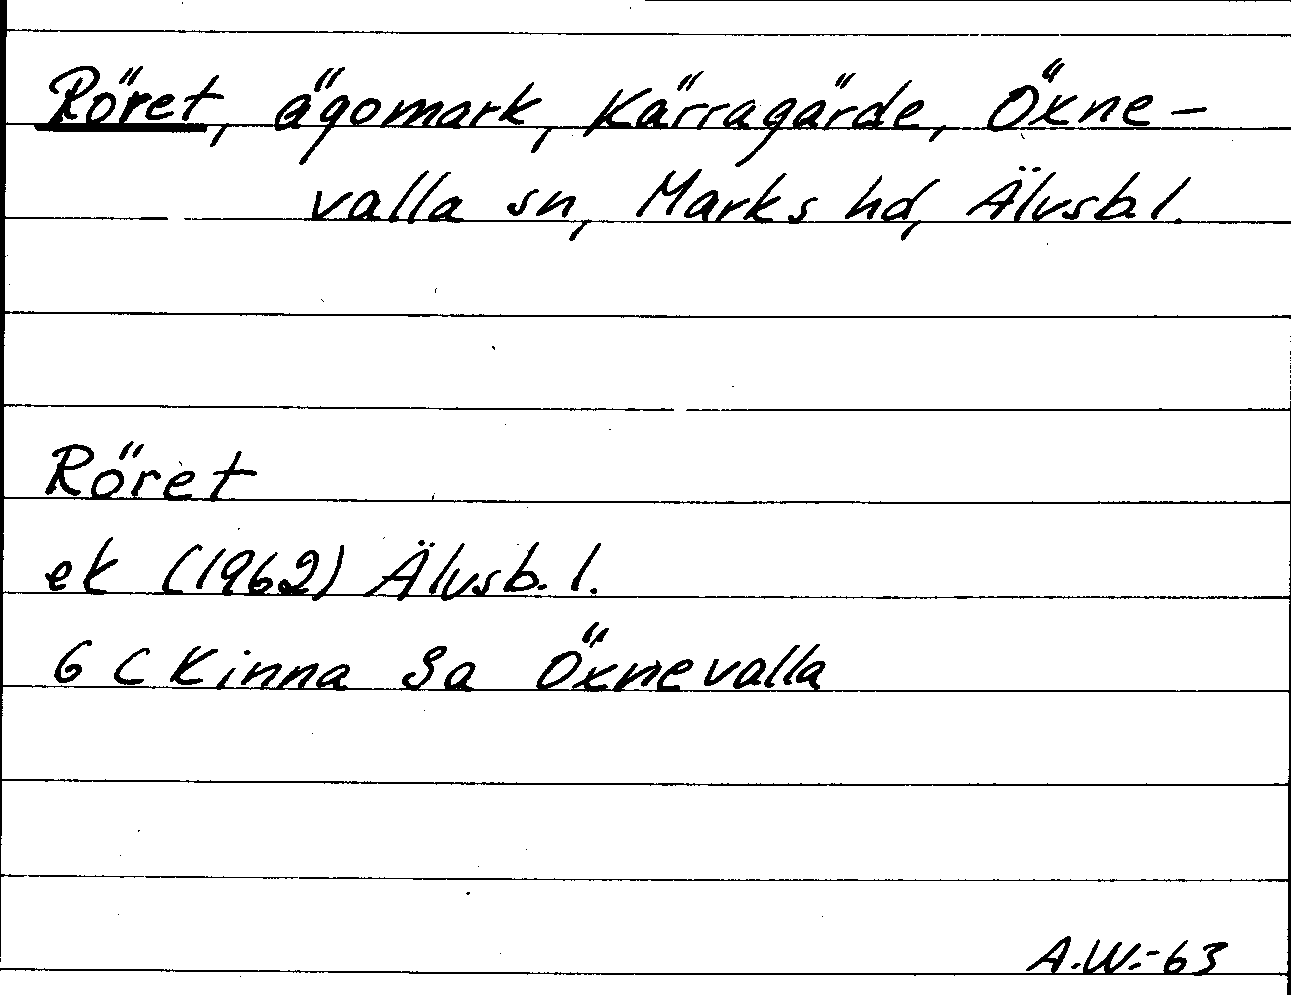 Röret, ägomark, Kärragärde, Öxne-
valla sn, Marks hd, Älvsb.l.
Röret
ek (1962) Älvsb. l.
6 C Kinna Sa Öxnevalla
A.W.-63